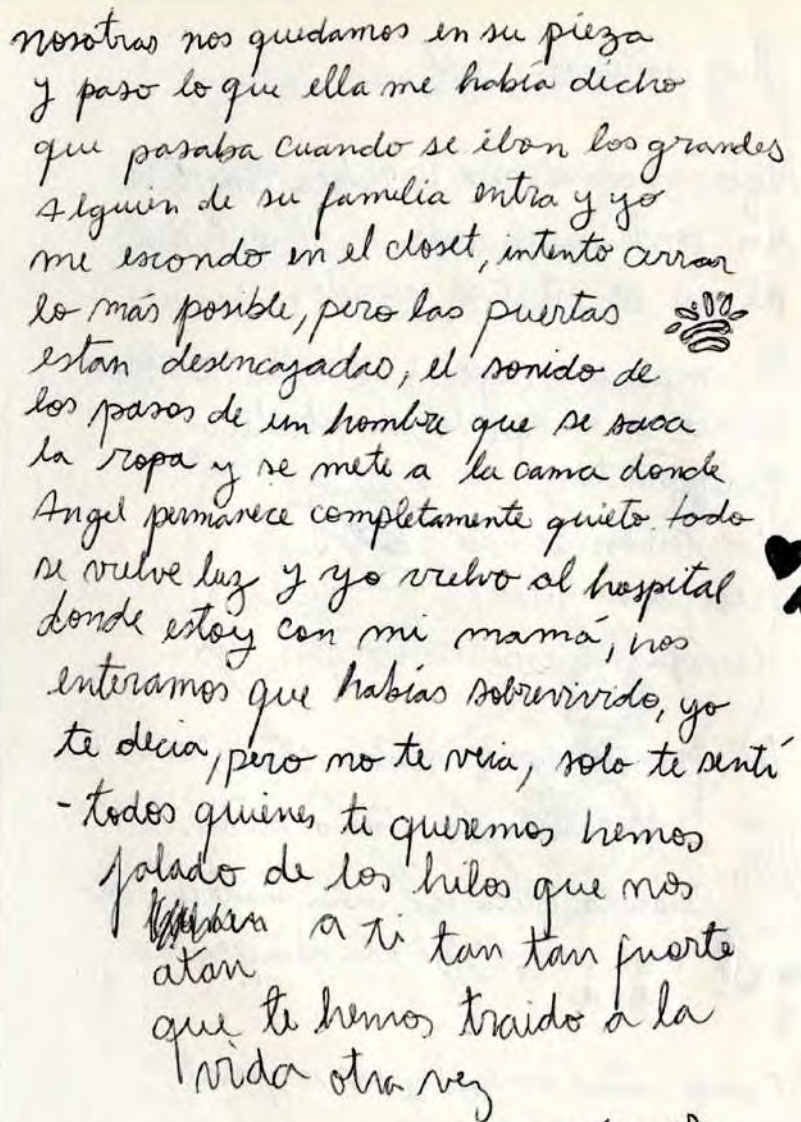 nosotras nos quedamos en su pieza
y paso lo que ella me había dicho
que pasaba cuando se iban los grandes
Alguien de su familia entra y yo
me escondo en el closet, intento cerrar
lo más posible, pero las puertas
estan desencajadas, el sonido de
los pasos de un hombre que se saca
la ropa y se mete a la cama donde
Angel permanece completamente quieto. todo
se vuelve luz y yo vuelvo al hospital
donde estoy con mi mamá, nos
enteramos que habías sobrevivido, yo
te decia, pero no te veia, solo te sentí
- todos quienes te queremos hemos
jalado de los hilos que nos
a ti tan tan fuerte
atan
que te hemos traido a la
vida otra vez